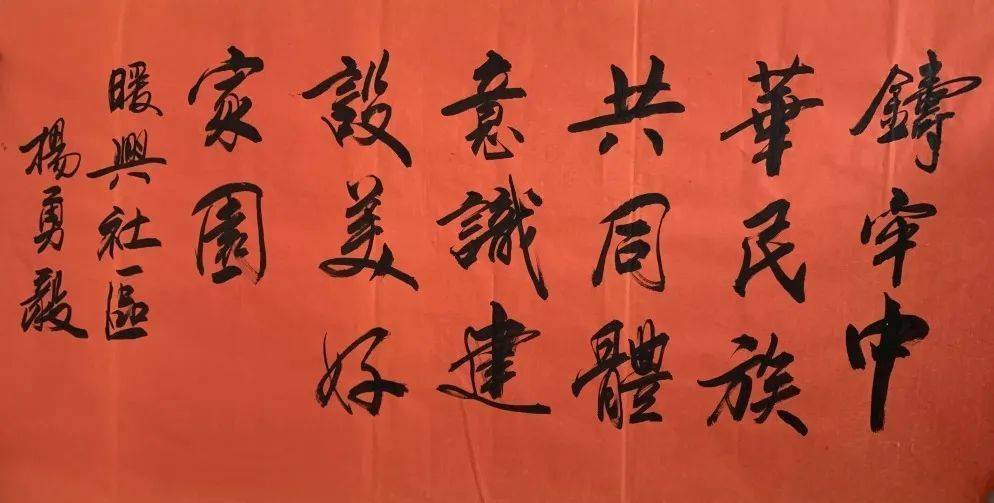 鑄牢中
華民族
共同體
意識建
設美好
家園
暖興社區
楊勇毅